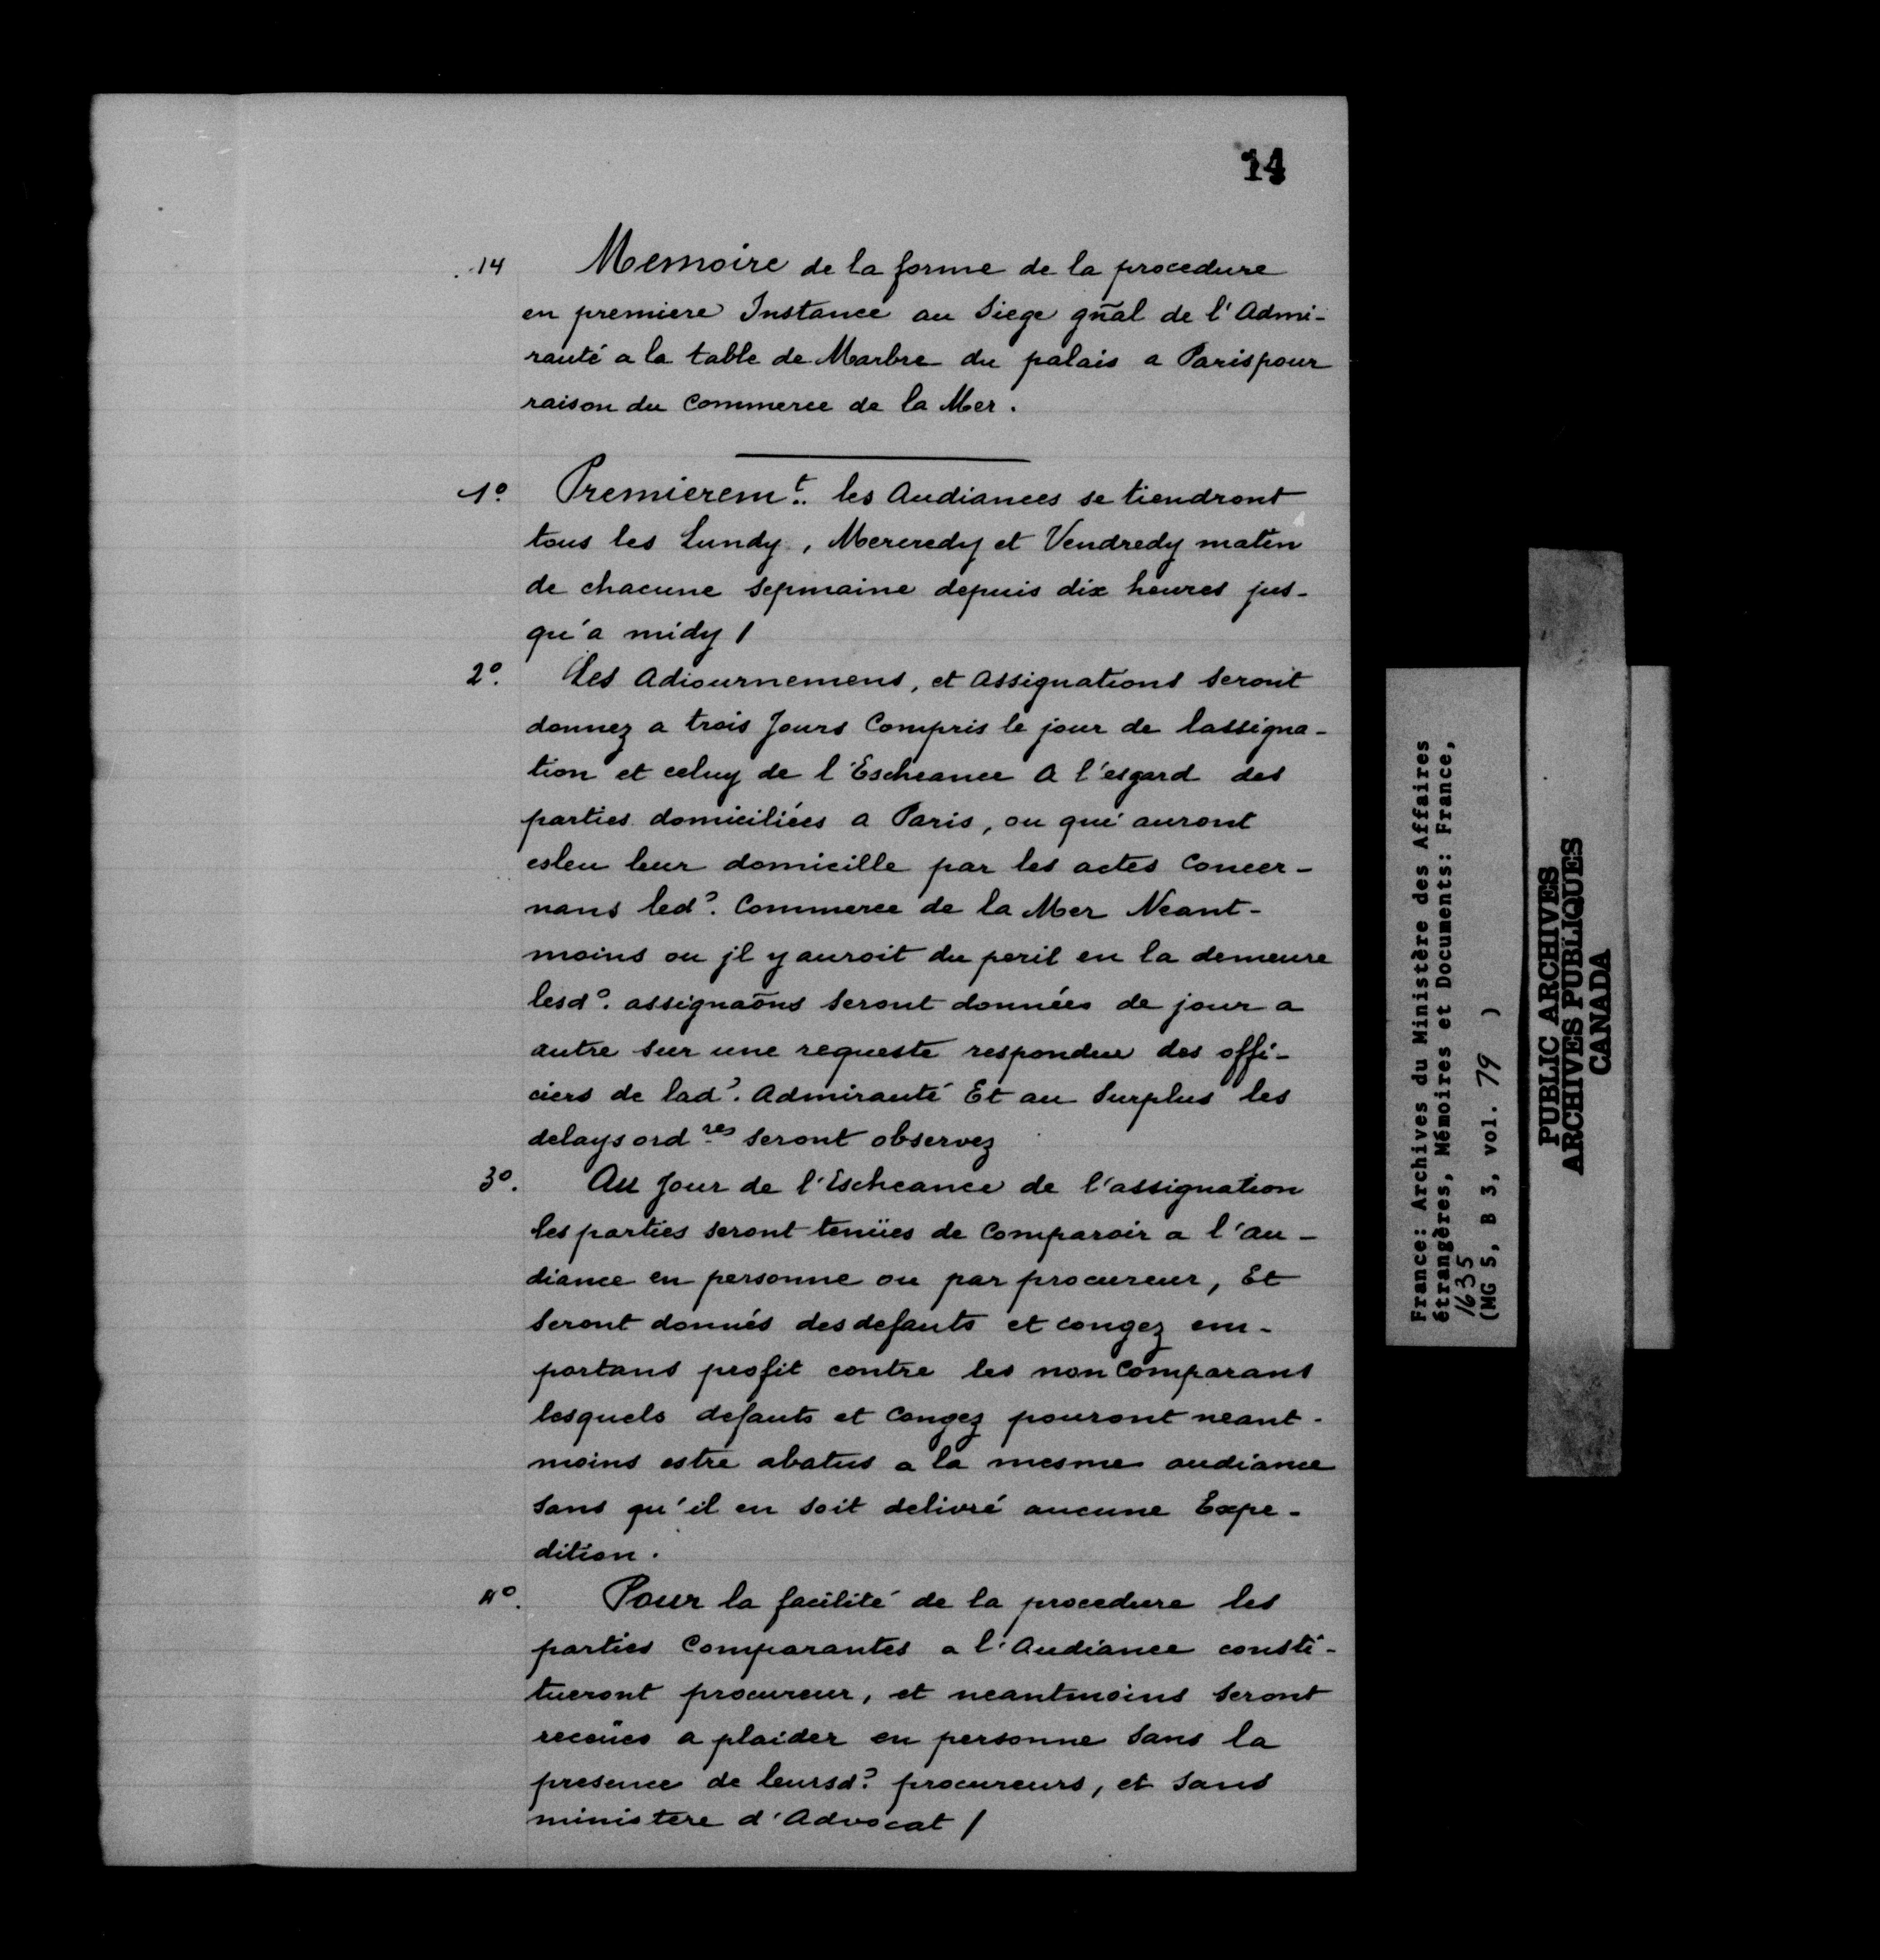 14
14 Memoire de la forme de la procedure
en premiere Instance au Siege gñal de l'Admi-
rauté a la table de Marbre du palais a Paris pour
raison du Commerce de la Mer.
1º Premierem.t les Audiances se tiendront
tous les Lundy, Mercredy et Vendredy matin
de chacune sepmaine depuis dix heures jus-
qu'a midy /
2º. Les Adiournemens, et Assignations seront
donnez a trois Jours Compris le jour de lassigna-
tion et celuy de l'Escheance A l'esgard des
parties domiciliées a Paris, ou qui auront
esleu leur domicille par les actes Concer-
nans led?. Commerce de la Mer Neant-
moins ou jl y auroit du peril en la demeure
lesdº. assignaõns seront données de jour a
autre sur une requeste respondue des offi-
ciers de lad?. Admirauté Et au Surplus les
delays ord.res seront observez
3º. Au Jour de l'Escheance de l'assignation
les parties seront tenües de Comparoir a l'au-
diance en personne ou par procureur, Et
seront donnés des defauts et congez em-
portans profit contre les non Comparans
lesquels defauts et Congez pouront neant-
moins estre abatus a la mesme audiance
sans qu'il en soit delivré aucune Expe-
dition.
4º. Pour la facilité de la procedure les
parties Comparantes a l'Audiance consti-
tueront procureur, et neantmoins seront
receües a plaider en personne sans la
presence de leursd? procureurs, et sans
ministere d'Advocat /
France: Archives du Ministère des Affaires
étrangères, Mémoires et Documents: France,
1635
(MG 5, B 3, vol. 79 )
PUBLIC ARCHIVES
ARCHIVES PUBLIQUES
CANADA